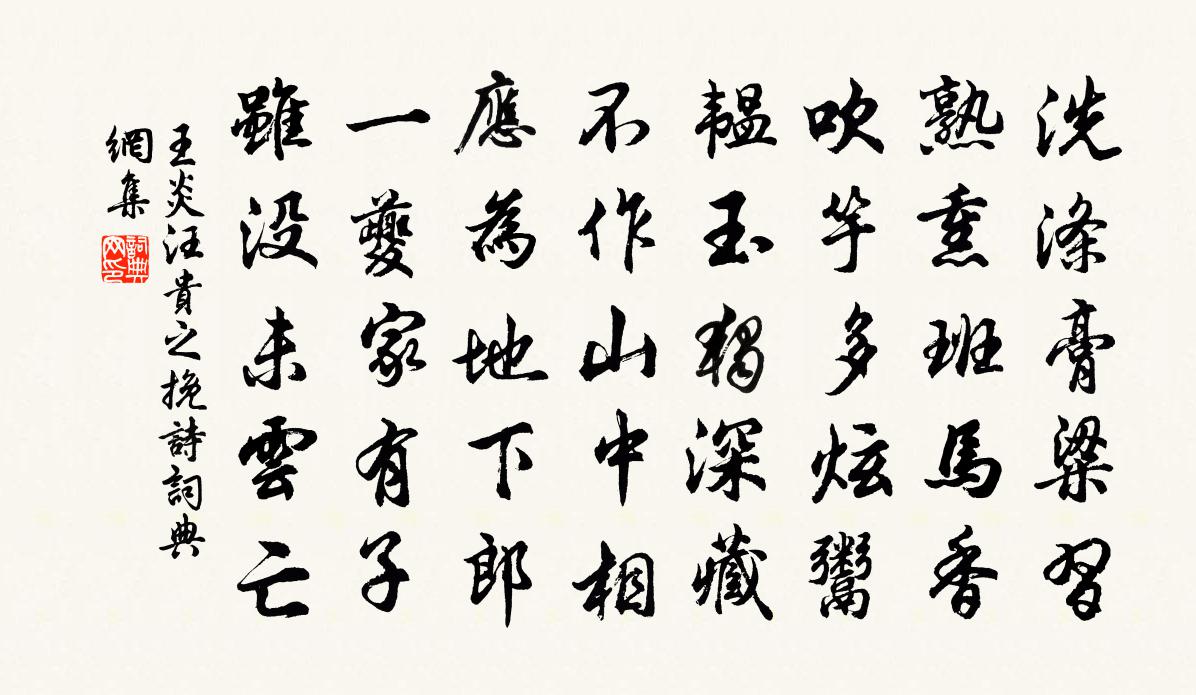 洗滌膏粱習
熟熏班馬香
吹竽多炫鬻
韞玉獨深藏
不作山中相
應為地下郎
一夔家有子
雖没未雲亡
王炎汪貴之挽詩詞典
網集
詞典網印